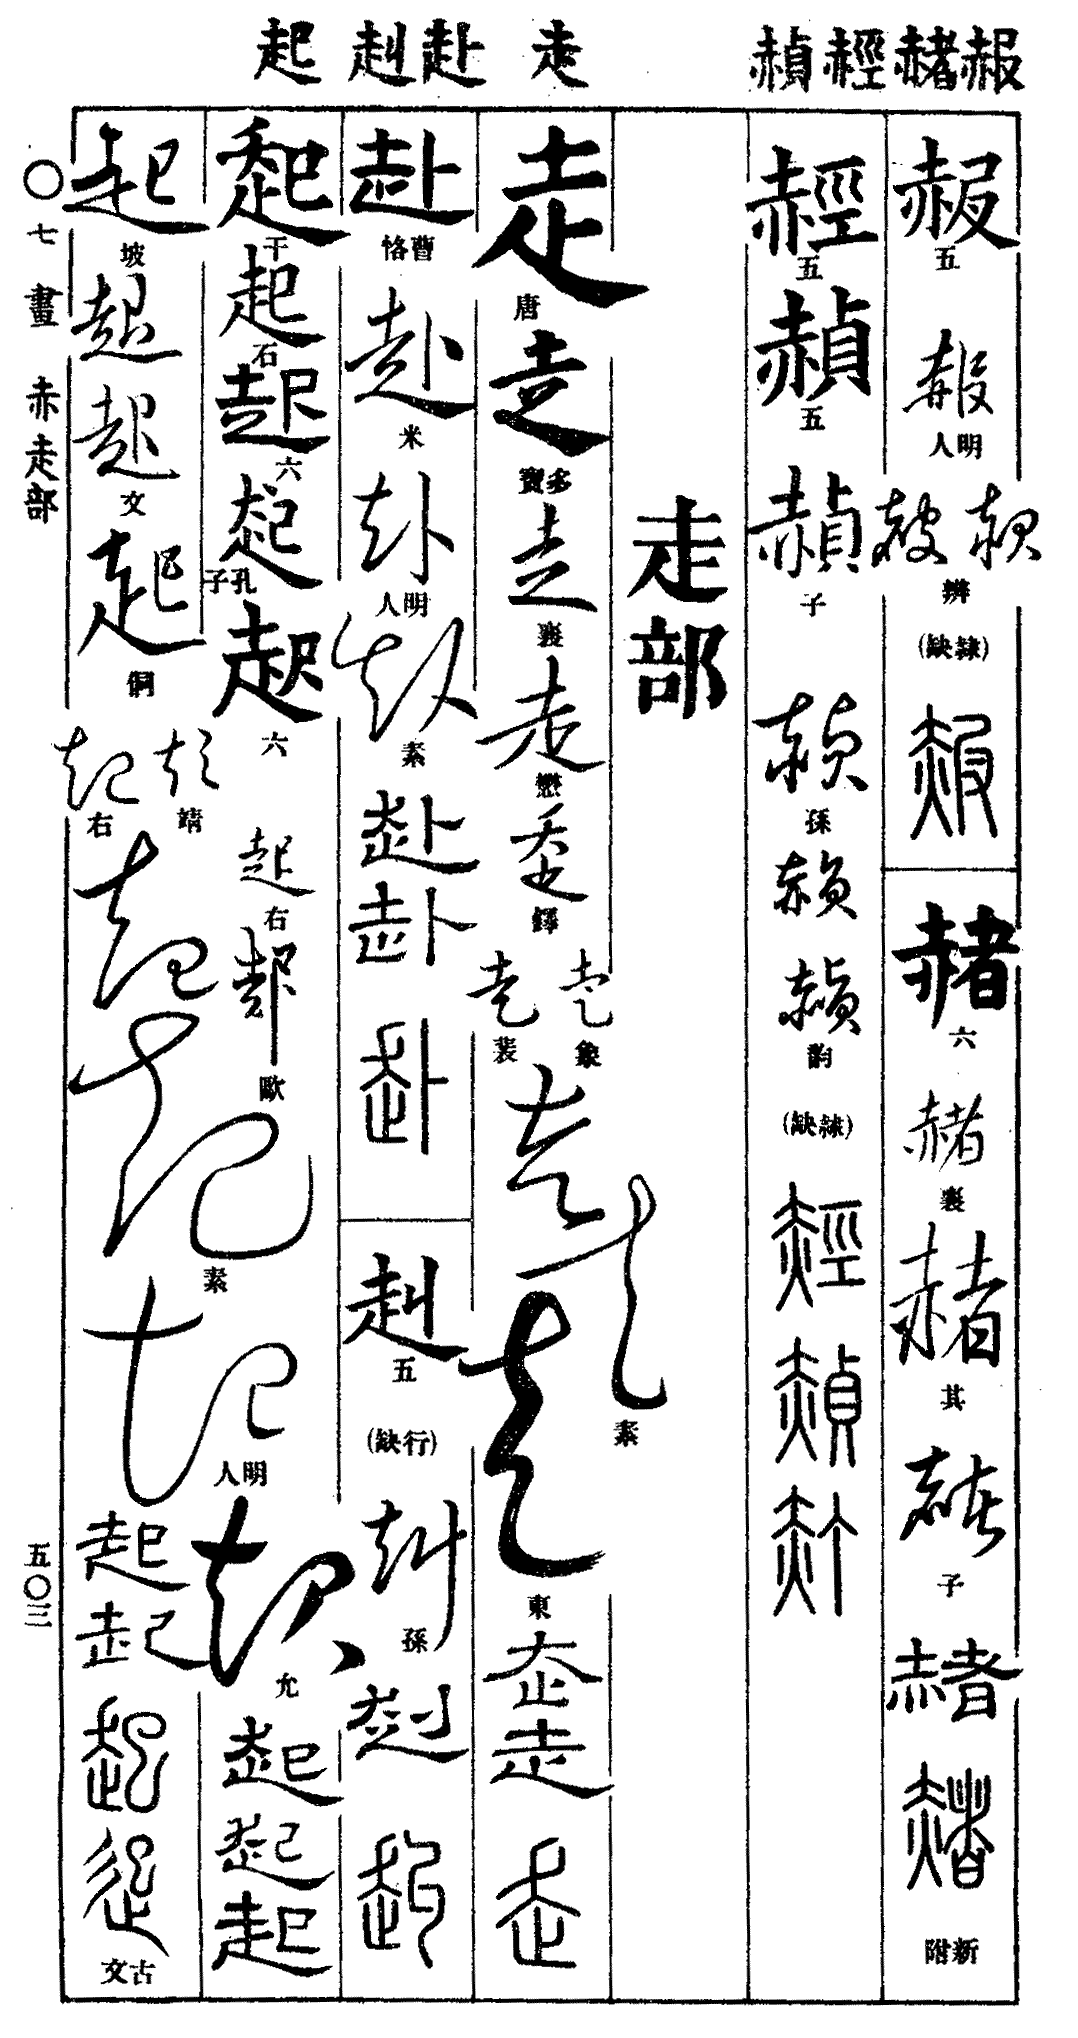 赧 赭 經 赬 走 赴 赳 起
赧
五
赧
明人
赧 赧
辨
(隸缺)
赧
赭
六
赭
襄
赭
其
赭
子
赭
赭
新附
五
赬
五
赬
子
赬
孫
赬
赬
韵
(隸缺)
赬
走部
走
唐
走
多寶
走
襄
走
懋
走
鐸
走 走
象 裴
走
走
素
走
東
走
走
走
赴
曹恪
赴
米
赴
明人
赴
素
赴
赴
赴
赳
五
(行缺)
赳
孫
赳
赳
起
干
起
石
起
六
起
孔子
起
六
起
右
起
歐
起
素
起
明人
起
允
起
起
起
起
坡
起
起
文
起
侗
起 起
靖 右
起
起
起
起
起
古文
〇七畫 赤走部
五〇三